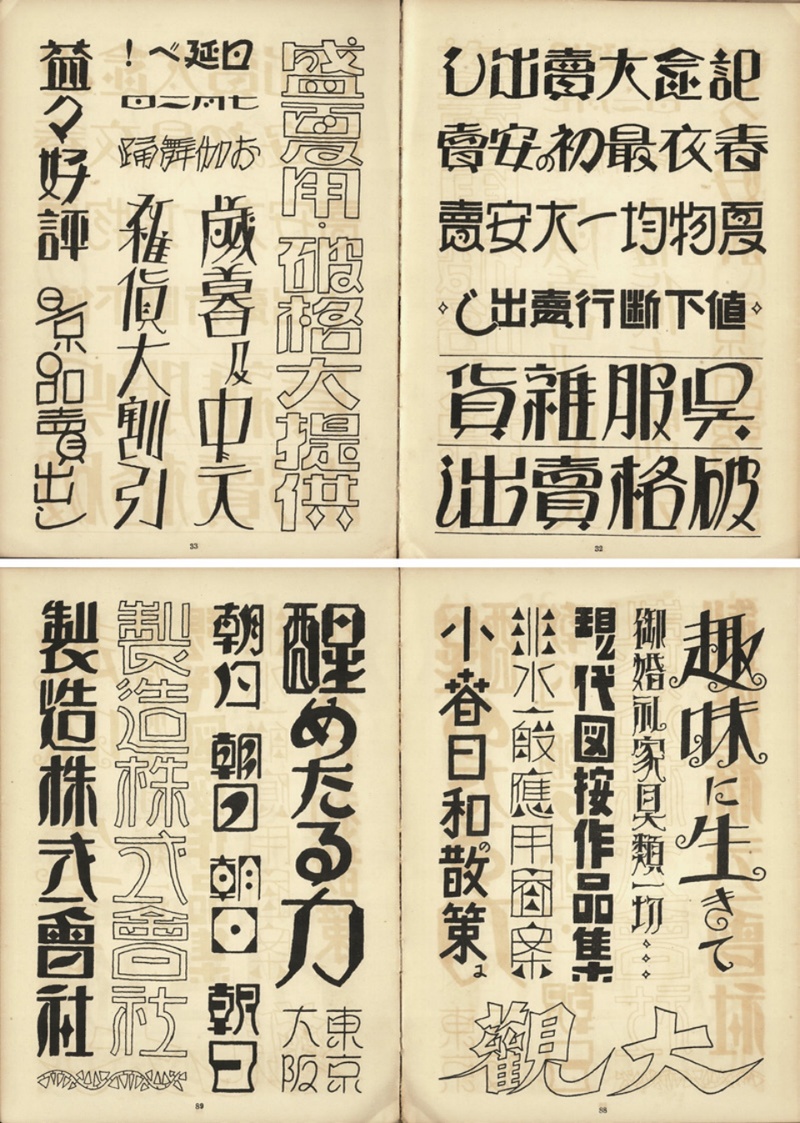 記念大賣出し
春衣最初の安賣
夏物均一大安賣
値下断行賣出し
呉服雑貨
破格賣出し
32
盛夏用・破格大提供
日延べ!
七月二日
お伽舞踊
歳暮及中元
雑貨大割引
益々好評
景品賣出し
33
趣味に生きて
御婚礼家具類一切…
現代図按作品集
非水一般應用圖案
小春日和の散策
大觀
88
醒めたる力
東京
大阪
朝日
朝日
朝日
朝日
製造株式會社
製造株式會社
89